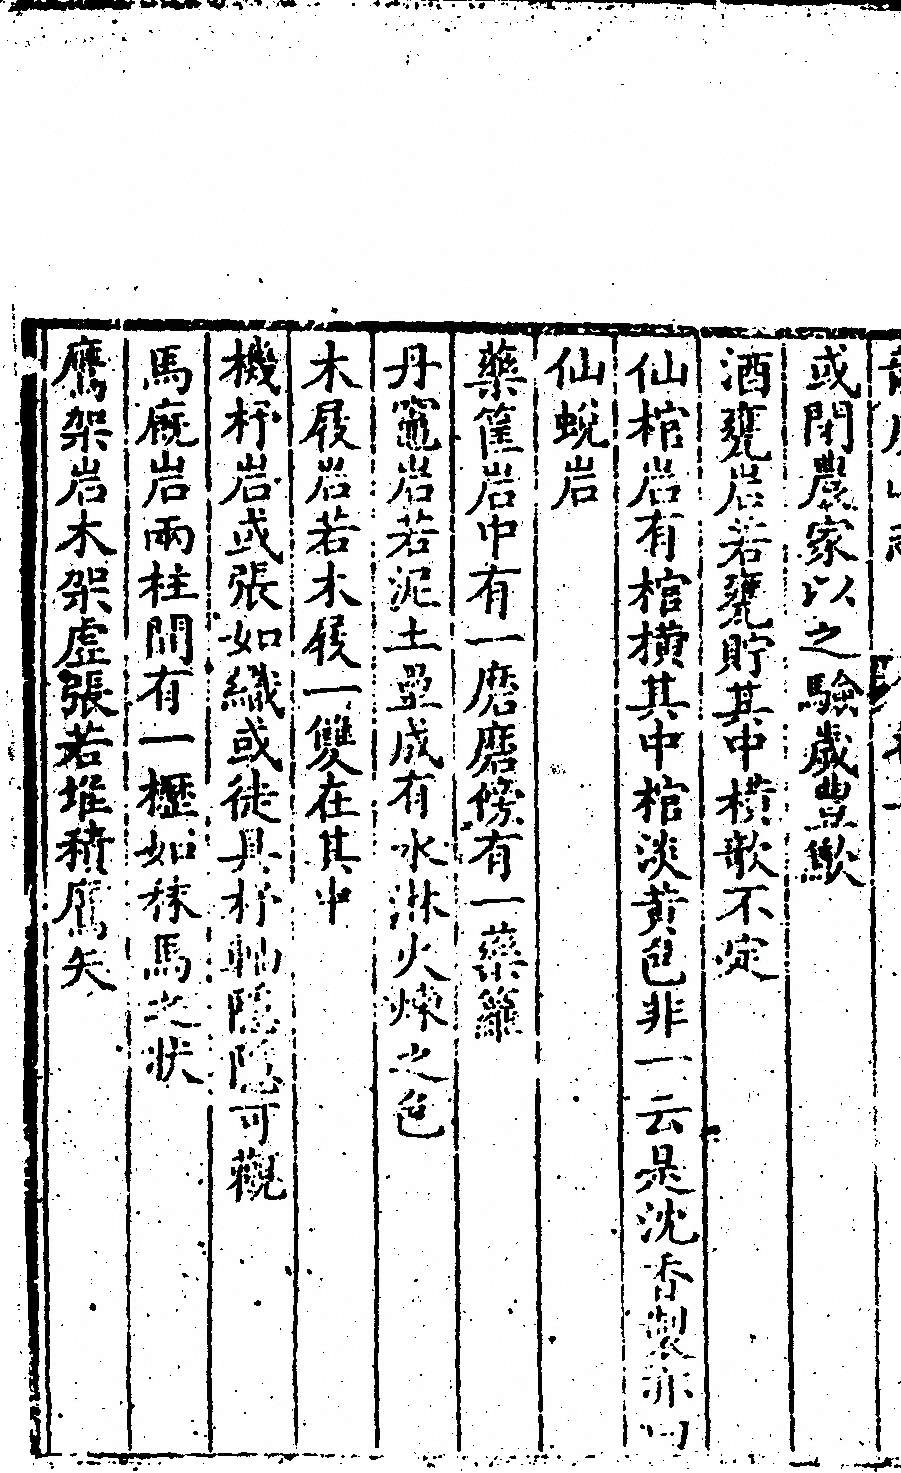 或閉農家以之驗歲豐歉
酒甕岩若甕貯其中橫欹不定
仙棺岩有棺橫其中棺淡黃色非一云是沈香製亦曰
仙蛻岩
藥筐岩中有一磨磨傍有一藥籮
丹竈岩若泥土壘成有水淋火煉之色
木屐岩若木屐一雙在其中
機杼岩或張如織或徒具杼軸隱隱可觀
馬廐岩兩柱間有一櫪如秣馬之狀
鷹架岩木架虛張若堆積鷹矢